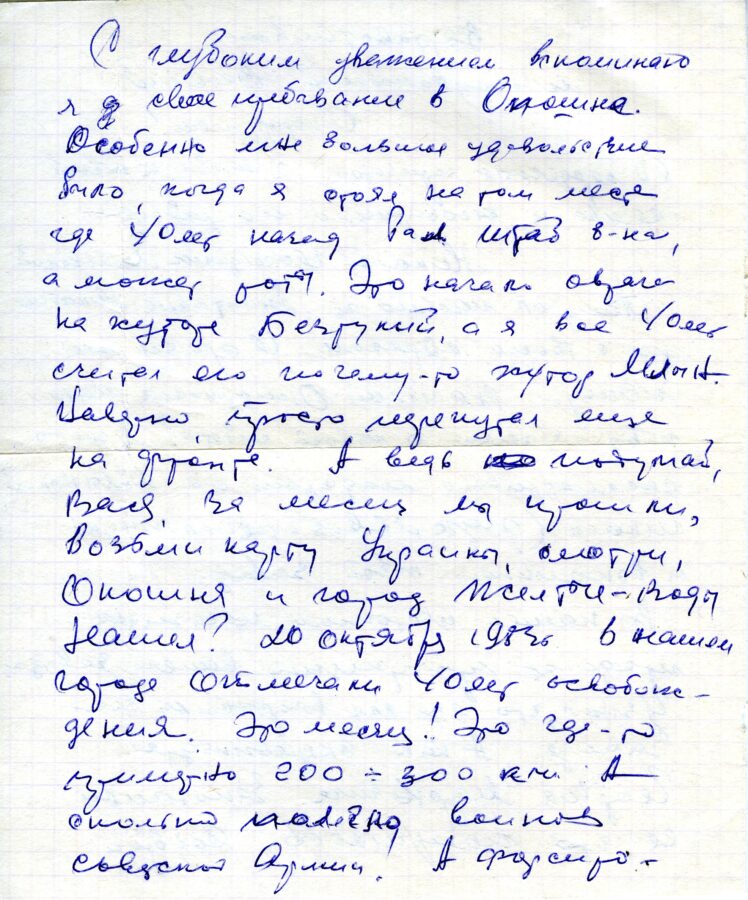 С глубоким уважением вспоминаю
я свое пребывание в Окошка.
Особенно мне большое удовольствие
было, когда я стоял на том месте
где 40 лет назад был штаб б-на,
а может роты. Это начало оврага
на хуторе Безрукий, а я все 40 лет
считал его почему-то хутор Млын.
Наверно просто перепутал еще
на фронте. А ведь подумай,
Вася, за месяц мы прошли,
возьми карту Украины, смотри,
Окошка и город Желтые-Воды
нашел? 20 октября 1983г в нашем
городе отмечали 40 лет освобож-
дения. Это месяц! Это где-то
примерно 200 ÷ 300 км. А
сколько полегло воинов
советской Армии! А форсиро-